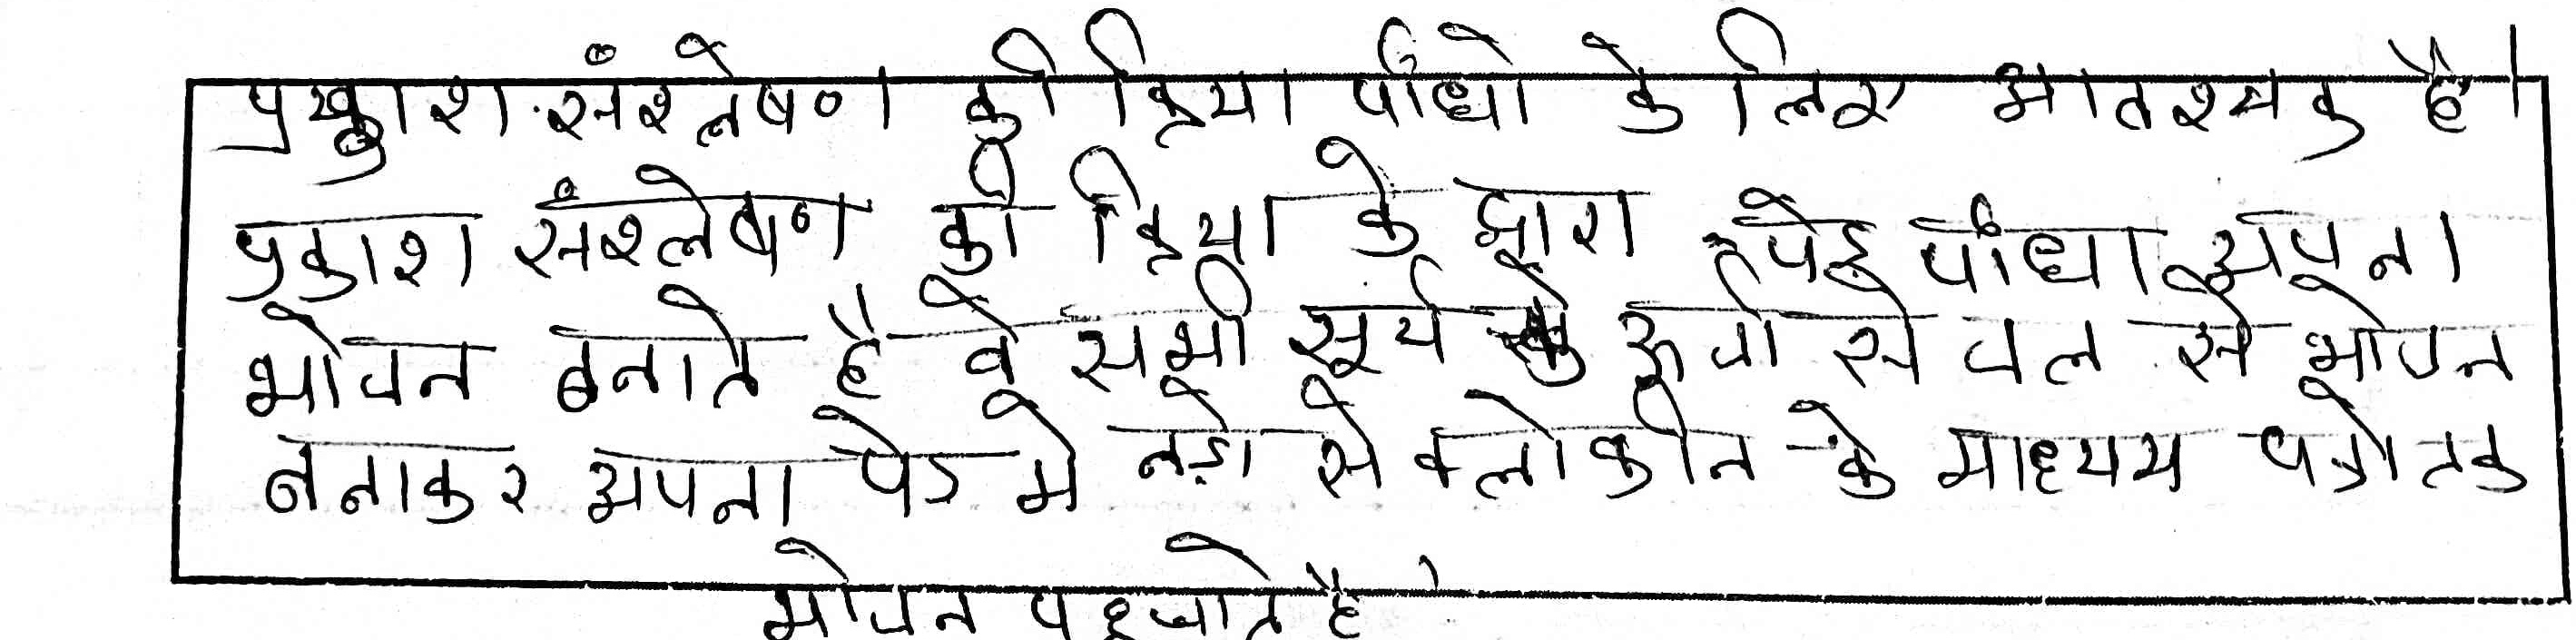 प्रकाश संश्लेषण की क्रिया पौधो के लिए आवश्यक है।
प्रकाश संश्लेषण की क्रिया के द्वारा पेड़ पौधा अपना
भोजन बनाते है वे सभी सूर्य के ऊर्जा से जल से भोजन
बनाकर अपना पेड मे जड़ो से क्लोकोन के माध्यम पत्तो तक
भोजन पहुचाते है